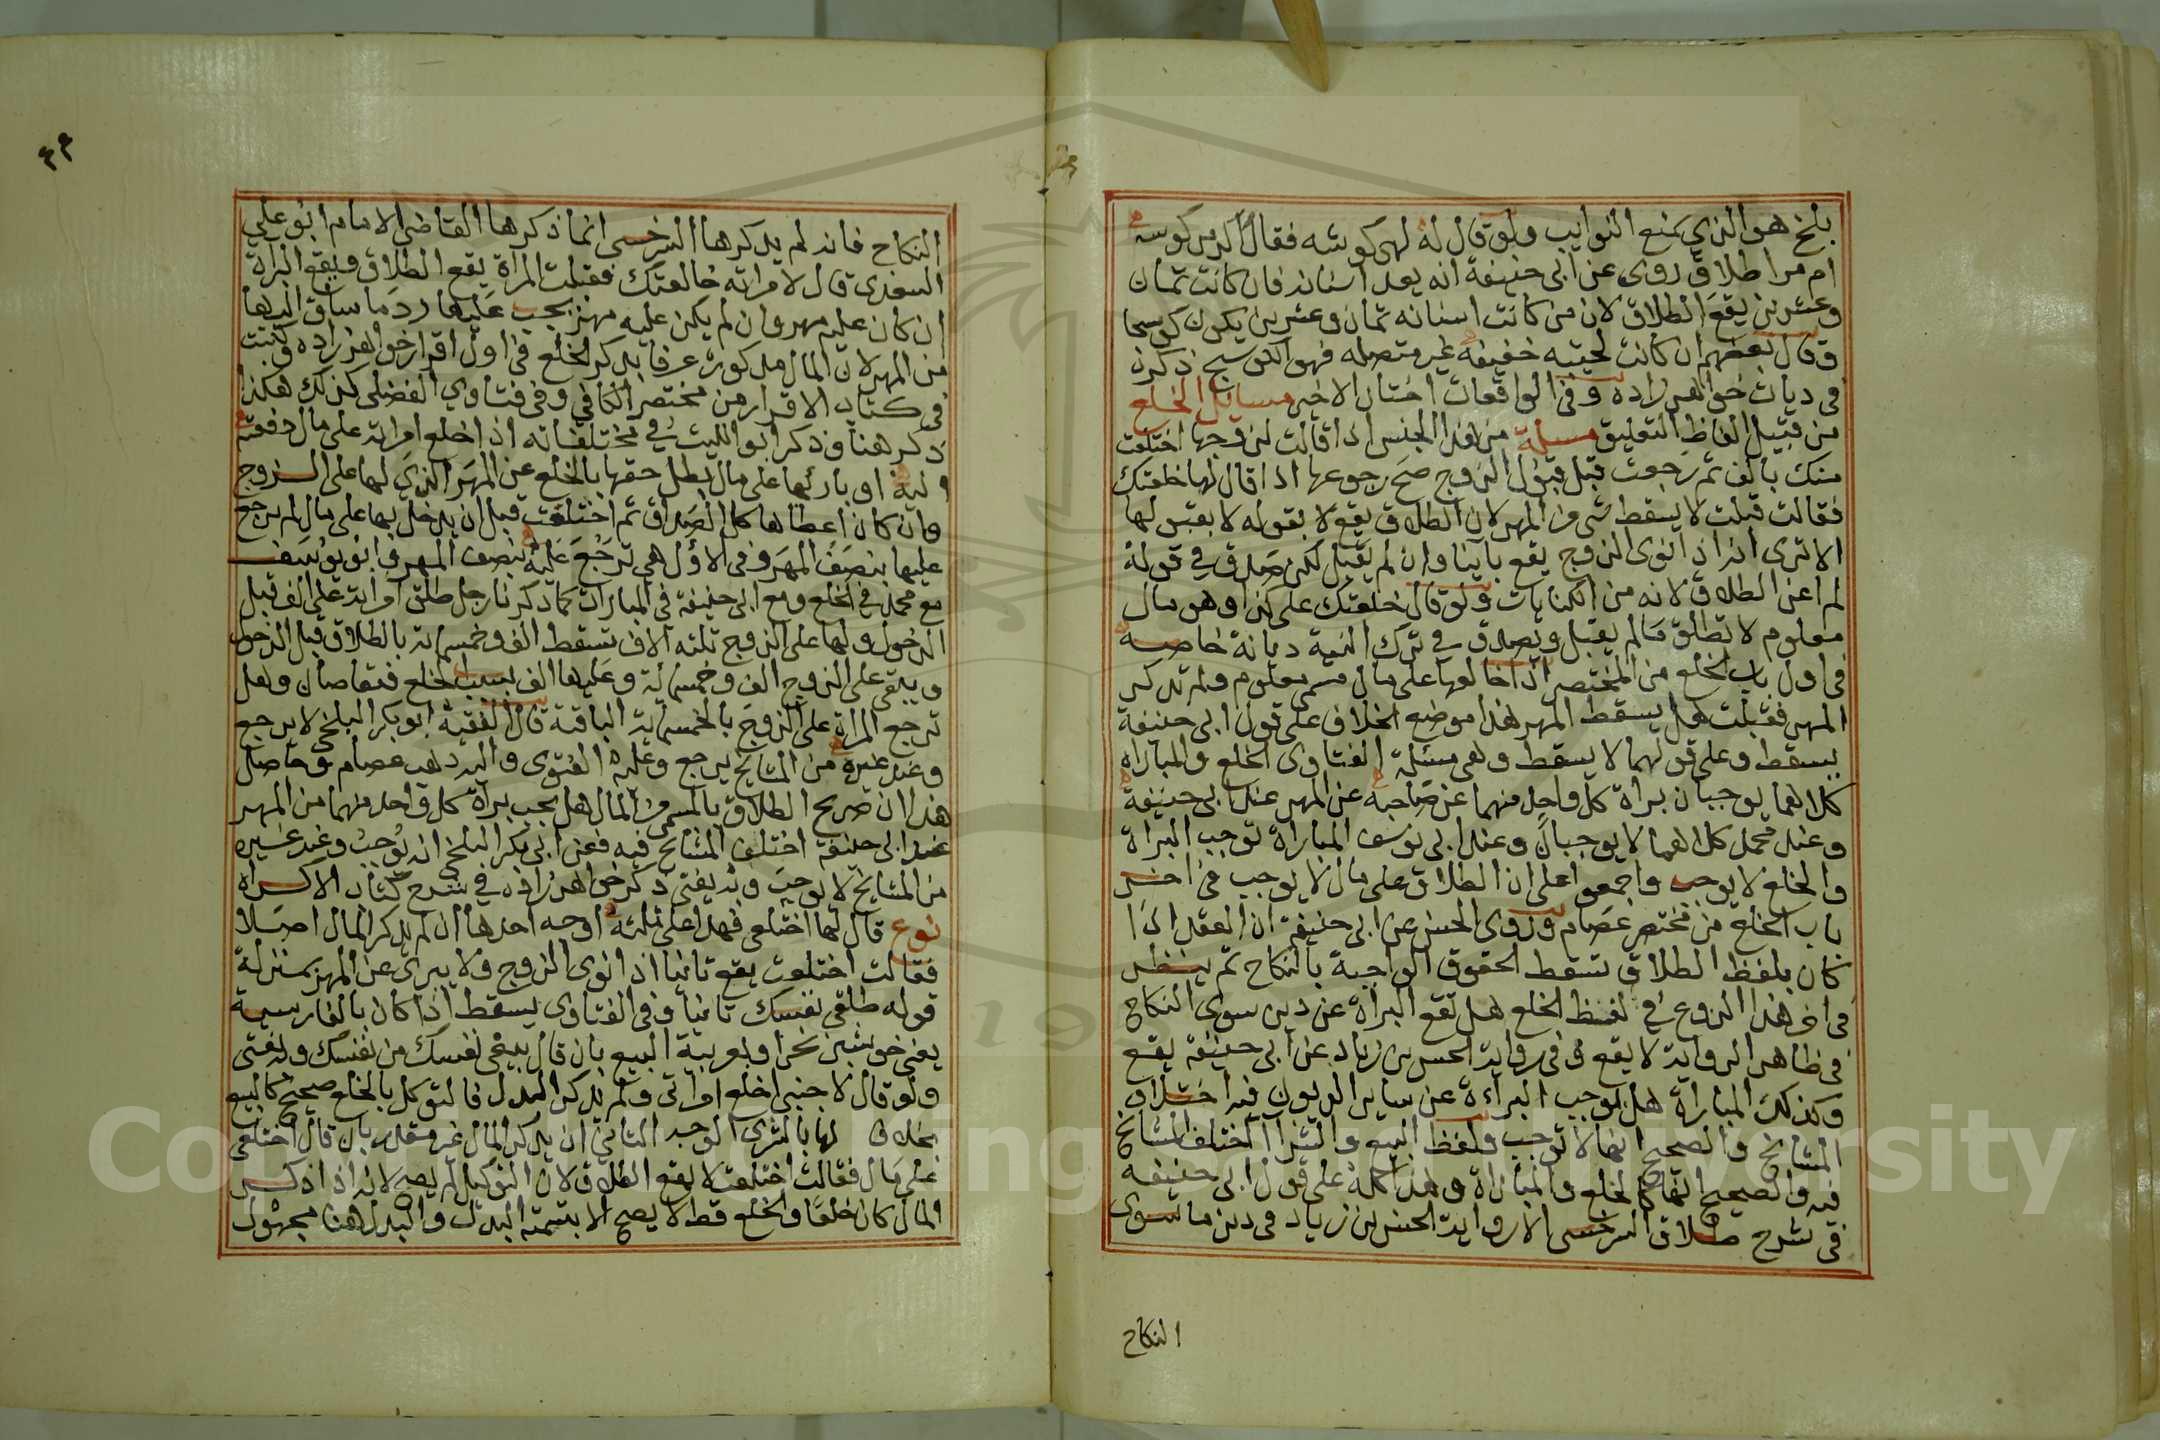 بلخ هو الذي يمنع النوايب ولو قال له لهى كوشه فقال اكر من كوسه
ام مرا طلاق روى عن ابى حنيفة انه يعد اسنانه فان كانت ثمان
وعشرين يقع الطلاق لان من كانت اسنانه ثمان وعشرين يكون كوسجا
وقال بعضهم ان كانت لحيته خفيفة غير متصله فهو الكوسج ذكره
فى ديات خواهر زاده وفى الواقعات اختان الاخير مسائل الخلع
من قبيل الفاظ التعليق مسئلة من هذا الجنس اذا قالت لزوجها اختلعت
منك بالف ثم رجعت قبل قبول الزوج صح رجوعها اذا قال لها خلعتك
فقالت قبلت لا يسقط شى من المهر لان الطلاق يقع لا بقوله لا بقبولها
الا ترى انه اذا نوى الزوج يقع باينا وان لم يقبل لكن صدق في قوله
لم اعن الطلاق لانه من الكنايات ولو قال خلعتك على كذا وهو مال
معلوم لا تطلق مالم يقبل ويصدق في ترك النية ديانة خاصه
فى اول باب الخلع من المختصر اذا خالعها على مال مسمى معلوم ولم تذكر
المهر فقبلت هل يسقط المهر هذا موضع الخلاف على قول ابى حنيفة
يسقط وعلى قولهما لا يسقط وهى مسئلة الفتاوى الخلع والمباراه
كلاهما يوجبان براة كل واحد منهما عن صاحبه عن المهر عند ابى حنيفة
وعند محمد كلاهما لا يوجبان وعند ابى يوسف المباراة توجب البراة
والخلع لا يوجب واجمعوا على ان الطلاق على مال لا يوجب فى اخر
باب الخلع من مختصر عصام وروى الحسن عن ابى حنيفة ان العقد اذا
كان بلفظ الطلاق تسقط الحقوق الواجبة بالنكاح ثم ينظر
فى اخر هذا النوع في لفظ الخلع هل تقع البراة عن دين سوى النكاح
فى ظاهر الرواية لا يقع وفى رواية الحسن بن زياد عن ابى حنيفة يقع
وكذلك المباراة هل توجب البراءة عن ساير الديون فيه اختلاف
المشايخ والصحيح انها لا توجب ولفظ البيع والشرا اختلف المشايخ
فيه والصحيح انها كالخلع والمباراة وهذا كله على قول ابى حنيفه
فى شرح طلاق السرخسى الا رواية الحسن بن زياد فى دين ما سوى
النكاح
٤٣
النكاح فانه لم يذكرها السرخسى انما ذكرها القاضى الامام ابو على
السغدى قال لامراته خالعتك فقبلت المراة يقع الطلاق ويقع البراة
ان كان عليه مهر وان لم يكن عليه مهر يجب عليها رد ما ساق اليها
من المهر لان المال مذكور عرفا بذكر الخلع فى اول اقرار خواهر زاده وكتبت
فى كتاب الاقرار من مختصر الكافي وفى فتاوي الفضلى كذلك هكذا
ذكر هنا وذكر ابو الليث في مختلفاته اذا خلع امراته على مال دفعته
اليه او بارئها على مال بطل حقها بالخلع عن المهر الذي لها على الزوج
وان كان اعطاها كل الصداق ثم اختلعت قبل ان يدخل بها على مال لم يرجع
عليها بنصف المهر وفى الاول هى ترجع عليه بنصف المهر وابو يوسف
مع محمد في الخلع ومع ابى حنيفة فى المبارات كما ذكرنا رجل طلق امراته على الف قبل
الدخول ولها على الزوج ثلثه الاف تسقط الف وخمسماية بالطلاق قبل الدخول
ويبقى على الزوج الف وخمسمائة وعليها الف بسبب الخلع فتقاصان وهل
ترجع المراة على الزوج بالخمسماية الباقية قال الفقيه ابو بكر البلخى لا يرجع
وعند غيره من المشايخ يرجع وعليه الفتوى واليه ذهب عصام وحاصل
هذا ان صريح الطلاق بالمسمى من المال هل يجب براة كل واحد منهما من المهر
عند ابى حنيفة اختلف المشايخ فيه فعن ابى بكر البلخى انه يوجب وعند غيره
من المشايخ لا يوجب وبه يفتى ذكر خواهر زاده في شرح كتاب الاكراه
نوع قال لها اختلعى فهذا على ثلثة اوجه احدها ان لم يذكر المال اصلا
فقالت اختلعت يقع ثانيا اذا نوى الزوج ولا يبرئ عن المهر بمنزلة
قوله طلقى نفسك ثانيا وفى الفتاوى يسقط اذا كان بالفارسية
يعنى خويشتن بخر او بعربية البيع بان قال بيعى نفسك من نفسك وبه يفتى
ولو قال لاجنبى اخلع امراتى ولم يذكر البدل فالتوكيل بالخلع صحيح كالبيع
بخلاف لها بالشرى الوجه الثاني ان يذكر المال غير مقدر بان قال اختلعى
على مال فقالت اختلعت لا يقع الطلاق لان التوكيل لم يصح لانه اذا ذكر
المال كان خلعا والخلع قط لا يصح الا بتسمية البدل والبدل هنا مجهول